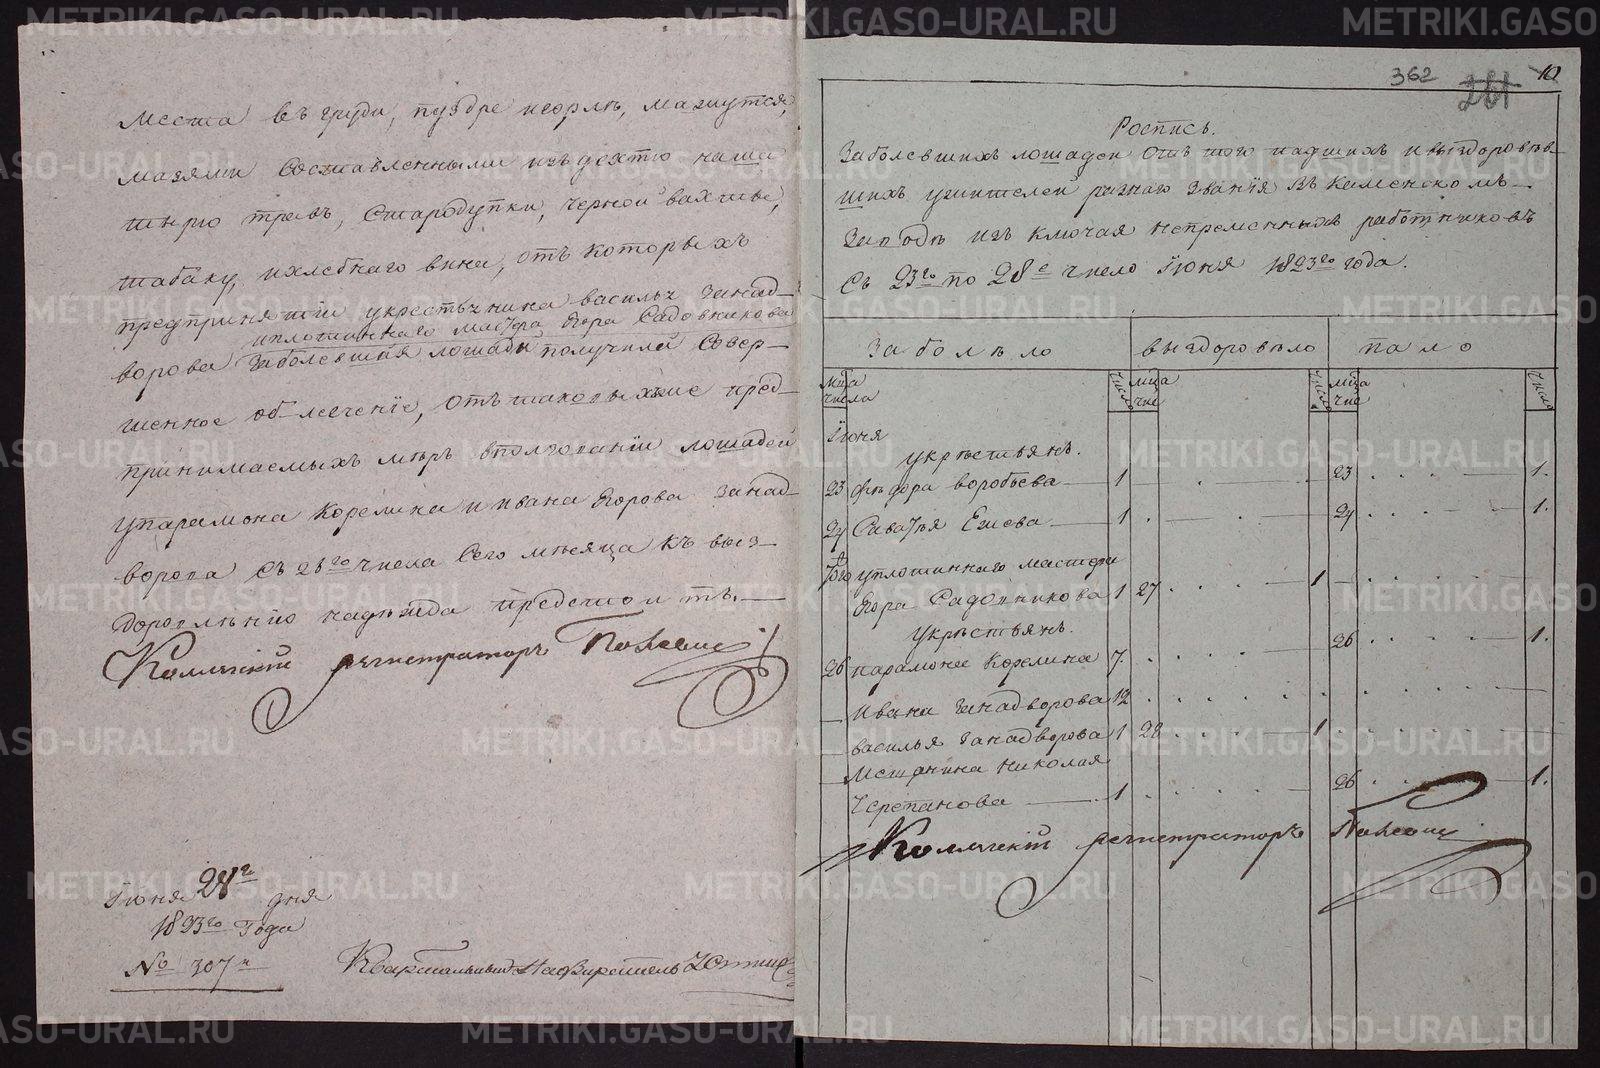 места въ груди, пуздре игорлѣ, мажутся,
мазями составленными изъ дехтю наша
тырю травъ, стародупки, черной вахты,
табаку, ихлебнаго вина, отъ которыхъ
предпринятiй укрестьянина василья Занад-
иплотиннаго мастера Егора Садовникова
ворова Заболевшiя лошади получили Совер-
шенное облегченiе, отъ таковыхже пред-
принимаемыхъ мѣръ впользованiи лошадей
упарамона Корелина иивана Егорова Занад-
ворова съ 28го числа Сего мѣсяца къ выз-
доровленiю надѣжда предстоитъ.
Коллежскiй регистраторъ
Iюня 28го дня
1823го Года
№ 307й
Квартальный Надзиратель
362 261 10
Роспись.
Заболевшихъ лошадей отъ того падшихъ ивыздоровѣв-
шихъ ужителей разнаго званiя въ Каменскомъ
Заводѣ изъ ключая непременныхъ работниковъ
съ 23го по 28е число Iюня 1823го года.
Заболѣло выздоровѣло пало
мца числа число мца чис число мца чис число
Iюня
укрѣстьянъ.
23 Фѣдора воробьева 1 23 1.
24 Саватѣя Ежева 1 24 1.
того уплотиннаго мастера
Егора Садовникова 1 27 1
укрѣстьянъ.
26 парамона Корелина 7. 26 1.
Ивана Занадворова 12
василья Занадворова 1 28 1
Мещанина николая
Черепанова 1 26 1.
Коллежскiй регистраторъ
METRIKI.GASO-URAL.RU